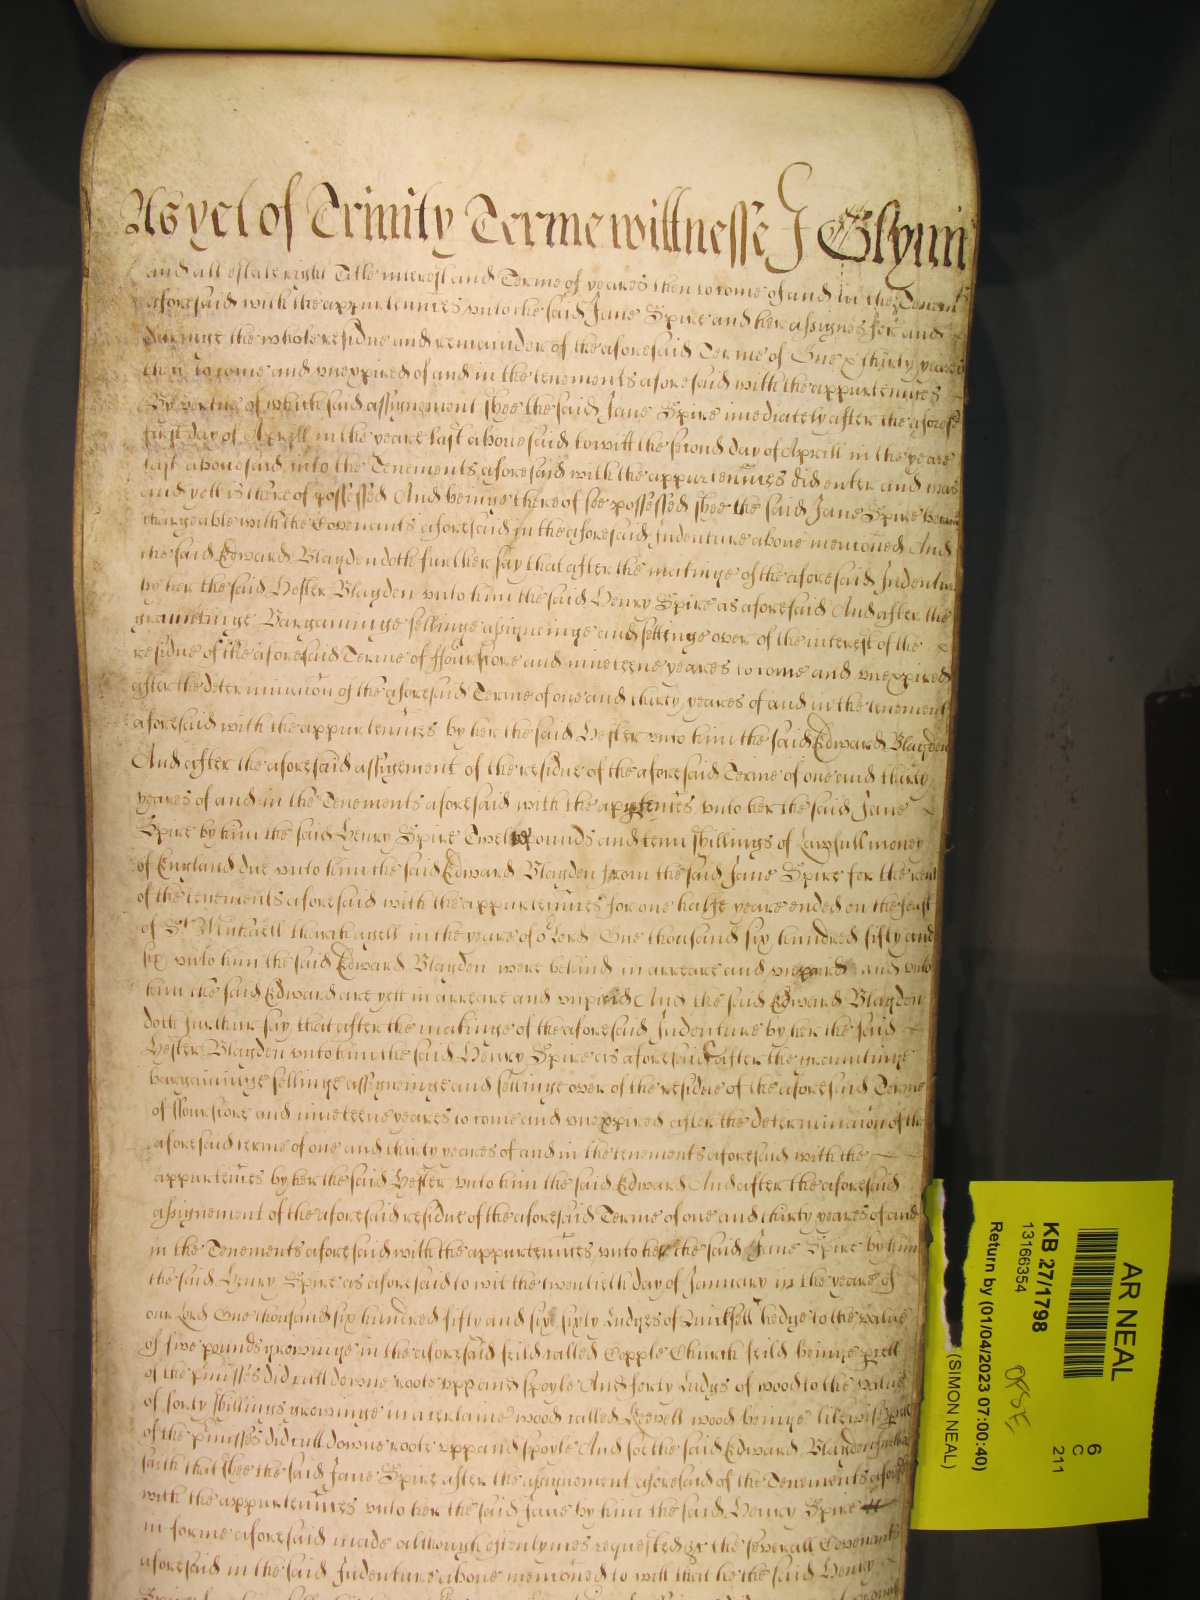 As yet of Trinity Terme wittnesse J Glynn
and all estate right Title interest and Terme of yeares then to come of and in the Tenemts
aforesaid with the appurtennces unto the said Jane Spire and her assignes for and
duringe the whole residue and remainder of the aforesaid Terme of One & thirty yeares
then to come and unexpired of and in the tenements aforesaid with the appurtennces
By vertue of which said assignement shee the said Jane Spire imediately after the aforesd
first day of Aprill in the yeare last abovesaid to witt the second day of Aprill in the yeare
last abovesaid into the Tenements aforesaid with the appurtennces did enter and was
and yett is thereof possessed And beinge thereof soe possessed shee the said Jane Spire became
chargeable with the Covenants aforesaid in the aforesaid Indenture above menconed And
the said Edward Blagden doth further say that after the makinge of the aforesaid Indenture
by her the said Hester Blagden unto him the said Henry Spire as aforesaid And after the
grauntinge Bargaininge sellinge assigneinge and settinge over of the interest of the
residue of the aforesaid Terme of ffourscore and nineteene yeares to come and unexpired
after the determinacon of the aforesaid Terme of one and thirty yeares of and in the tenements
aforesaid with the appurtennces by her the said Hester unto him the said Edward Blagden
And after the aforesaid assignement of the residue of the aforesaid Terme of one and thirty
yeares of and in the Tenements aforesaid with the appurtennces unto her the said Jane
Spire by him the said Henry Spire Twelve pounds and tenn shillings of Lawfull money
of England due unto him the said Edward Blagden from the said Jane Spire for the rent
of the tenements aforesaid with the appurtennces for one halfe yeare ended on the feast
of St Michaell tharchangell in the yeare of or Lord One thousand six hundred fifty and
six unto him the said Edward Blagden were behind in arreare and unpaid and unto
him the said Edward are yett in arreare and unpaid And the said Edward Blagden
doth further say that after the makinge of the aforesaid Indenture by her the said
Hester Blagden unto him the said Henry Spire as aforesaid & after the grauntinge
bargaininge sellinge assigneinge and settinge over of the residue of the aforesaid Terme
of ffourscore and nineteene yeares to come and unexpired after the determinacon of the
aforesaid terme of one and thirty yeares of and in the tenements aforesaid with the
appurtennces by her the said Hester unto him the said Edward And after the aforesaid
assignement of the aforesaid residue of the aforesaid Terme of one and thirty yeares of and
in the Tenements aforesaid with the appurtennces unto her the said Jane Spire by him
the said Henry Spire as aforesaid to wit the twentieth day of January in the yeare of
our Lord One thousand six hundred fifty and six sixty Ludges of Quicksett hedge to the value
of five pounds growinge in the aforesaid feild called Copple Church feild beinge pcell
of the pmisses did cutt downe roote upp and spoyle And forty Ludgs of wood to the value
of forty shillings growinge in a certaine wood called wood beinge likewise pcell
of the pmisses did cutt downe roote upp and spoyle And soe the said Edward Blagden further
saith that shee the said Jane Spire after the assignement aforesaid of the Tenements aforesd
with the appurtennces unto her the said Jane by him the said Henry Spire
in forme aforesaid made although oftentymes requested the severall Covenants
aforesaid in the said Indenture above menconed to witt that he the said Henry
AR NEAL
KB 27/1798
13166354
Return by (01/04/2023 07:00:40)
(SIMON NEAL)
6
C
211